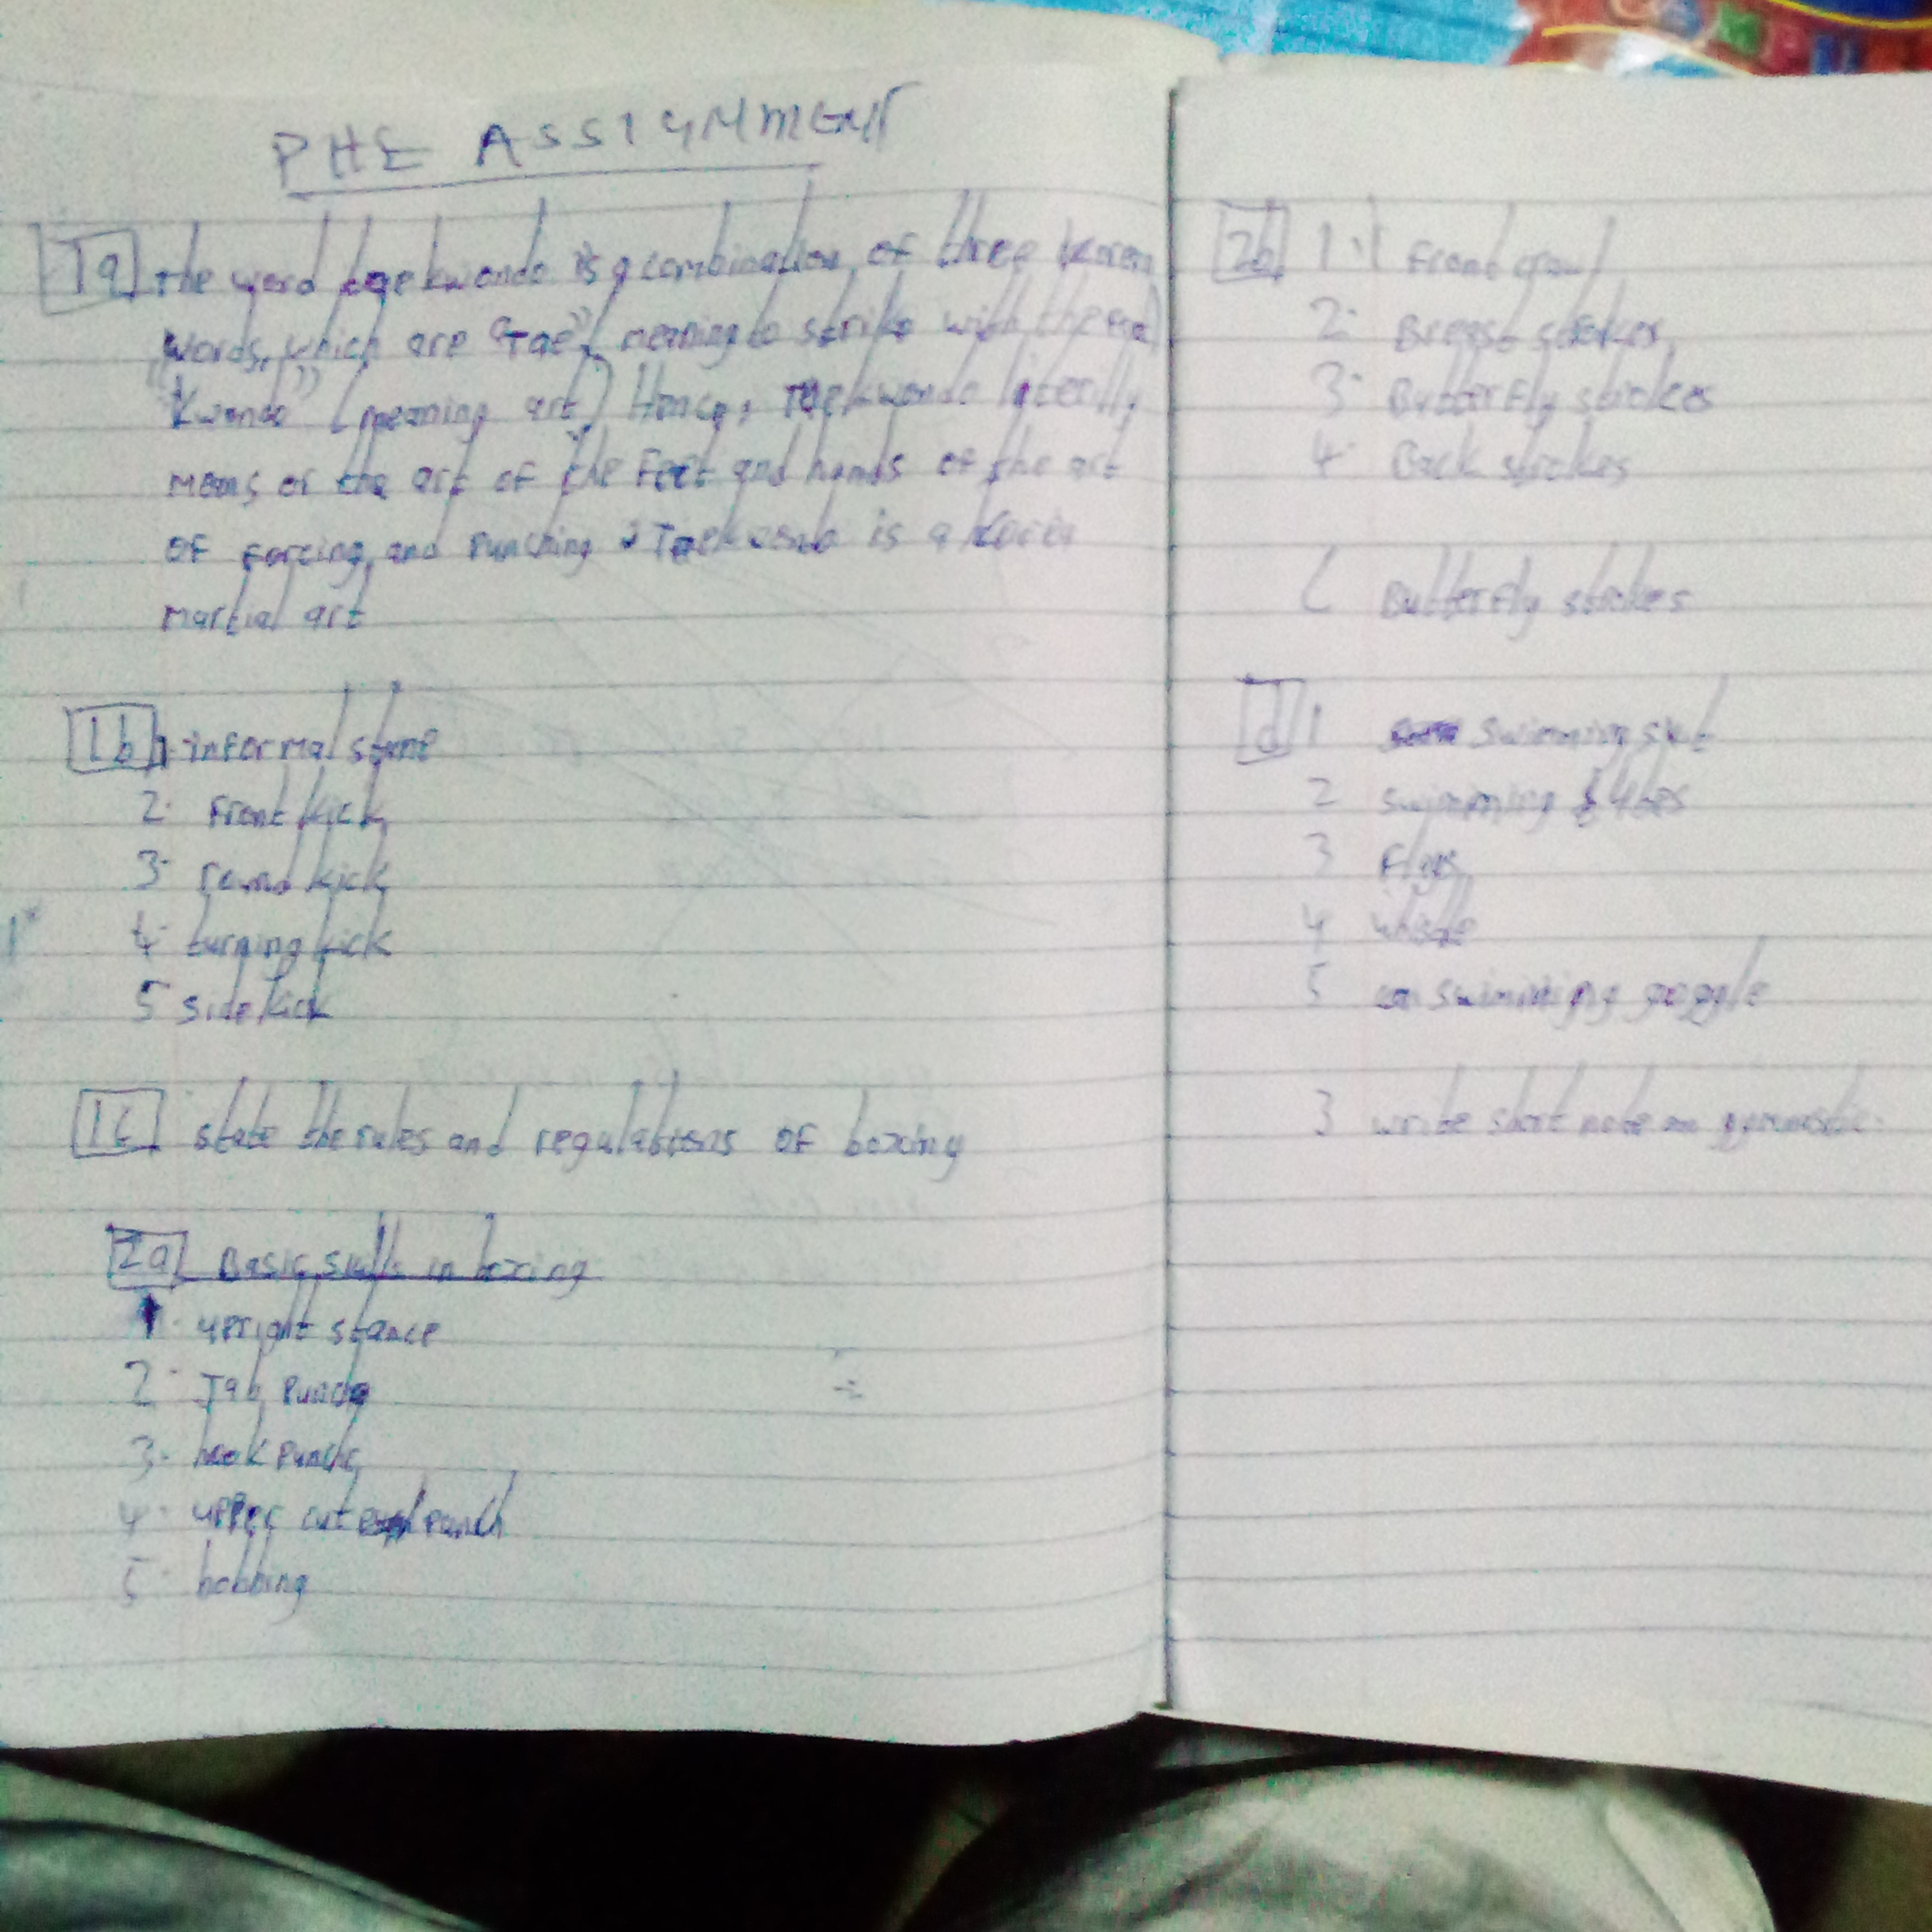 PHE ASSIGNMENT
1a The word taekwondo is a combination of three korean
words, which are "Tae" meaning to strike with the
"kwondo" (meaning art) Hence, Taekwondo literilly
means or the art of the Feet and hands of the art
of forcing, and punching Taekwondo is a
martial art
1b 1. informal
2. Front kick
3. round kick
4. turning kick
5 side kick
1c state the rules and regulations of boxing
2a Basic skills in boxing
1. upright stance
2. Jab
3. hook Punch
4. upper cut Punch
5. bobbing
2b 1. Front crawl
2. Breast
3. Butterfly strokes
4. Back strokes
C Butterfly strokes
d 1 swimming
2 swimming
3 Flags
4 whistle
5 swimming goggle
3 write short note on